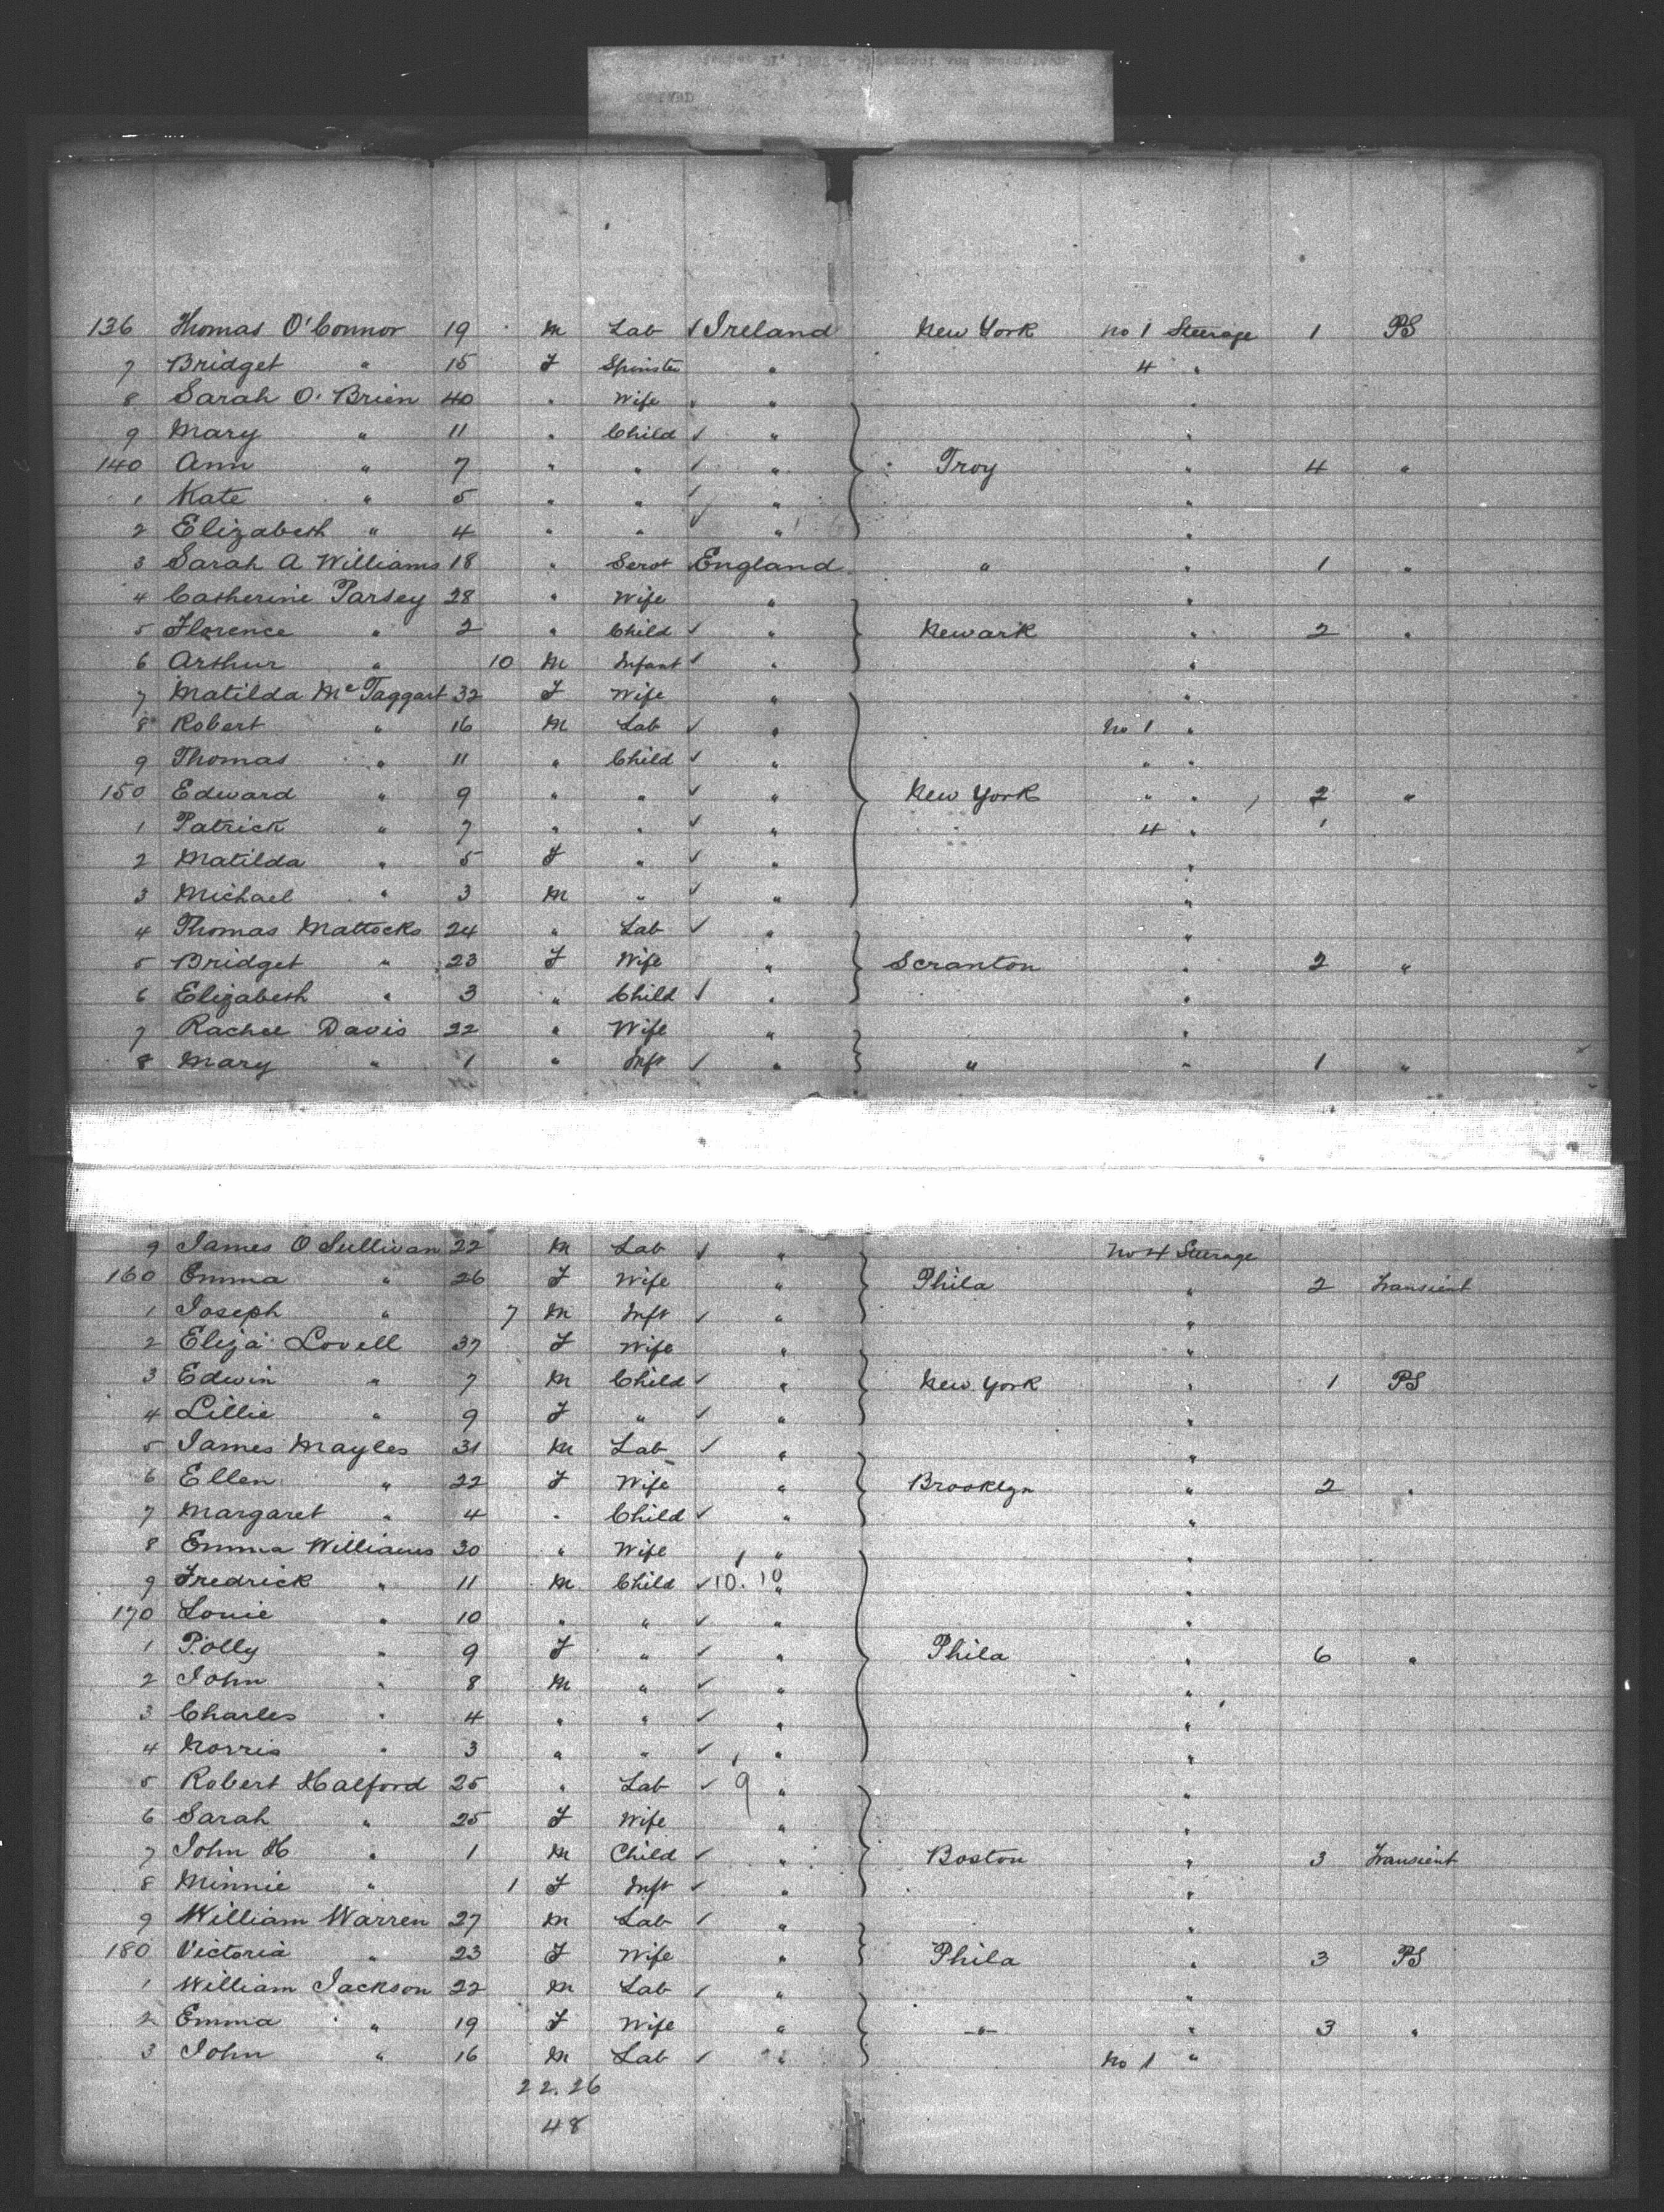 136 Thomas O'Connor 19 M Lab ✓ Ireland New York No 1 Steerage 1 PS
7 Bridget " 15 F Spinster " 4 "
8 Sarah O'Brien 40 " Wife " " "
9 Mary " 11 " Child ✓ " "
140 Ann " 7 " " ✓ " Troy " 4 "
1 Kate " 5 " " ✓ " "
2 Elizabeth " 4 " " ✓ " "
3 Sarah A Williams 18 " Servt England " " 1 "
4 Catherine Parsey 28 " Wife " "
5 Florence " 2 " Child ✓ " Newark " 2 "
6 Arthur " 10 M Infant ✓ " "
7 Matilda McTaggart 32 F Wife " "
8 Robert " 16 M Lab ✓ " No 1 "
9 Thomas " 11 " Child ✓ " " "
150 Edward " 9 " " ✓ " New York " " 2 "
1 Patrick " 7 " " ✓ " 4 "
2 Matilda " 5 F " ✓ " "
3 Michael " 3 M " ✓ " "
4 Thomas Mattocks 24 " Lab ✓ " "
5 Bridget " 23 F Wife " Scranton " 2 "
6 Elizabeth " 3 " Child ✓ " "
7 Rachel Davis 22 " Wife " "
8 Mary " 1 " Inft ✓ " " " 1 "
9 James O Sullivan 22 M Lab ✓ " No 4 Steerage
160 Emma " 26 F Wife " Phila " 2 Transient
1 Joseph " 7 M Inft ✓ " "
2 Eliza Lovell 37 F Wife " "
3 Edwin " 7 M Child ✓ " New York " 1 PS
4 Lillie " 9 F " ✓ " "
5 James Mayles 31 M Lab ✓ " "
6 Ellen " 22 F Wife " Brooklyn " 2 "
7 Margaret " 4 " Child ✓ " "
8 Emma Williams 30 " Wife " "
9 Fredrick " 11 M Child ✓ 10. 10 " "
170 Louie " 10 " " ✓ " "
1 Polly " 9 F " ✓ " Phila " 6 "
2 John " 8 M " ✓ " "
3 Charles " 4 " " ✓ " "
4 Norris " 3 " " ✓ " "
5 Robert Halford 25 " Lab ✓ 9 " "
6 Sarah " 25 F Wife " "
7 John H " 1 M Child ✓ " Boston " 3 Transient
8 Minnie " 1 F Inft ✓ " "
9 William Warren 27 M Lab ✓ " "
180 Victoria " 23 F Wife " Phila " 3 PS
1 William Jackson 22 M Lab ✓ " "
2 Emma " 19 F Wife " " " 3 "
3 John " 16 M Lab ✓ " No 1 "
22.26
48